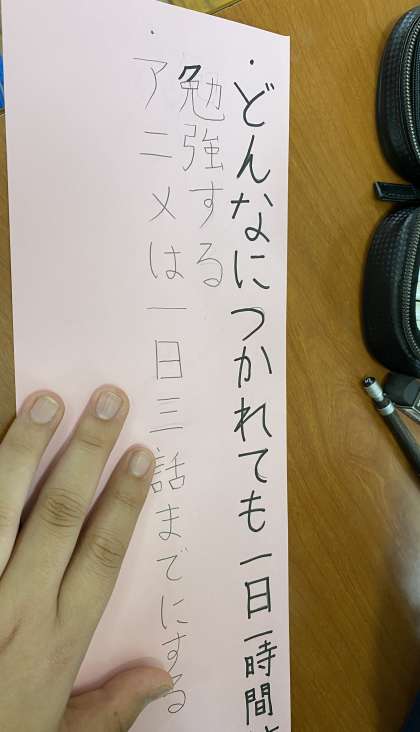 ・どんなにつかれても一日一時間
勉強する
・アニメは一日三話までにする